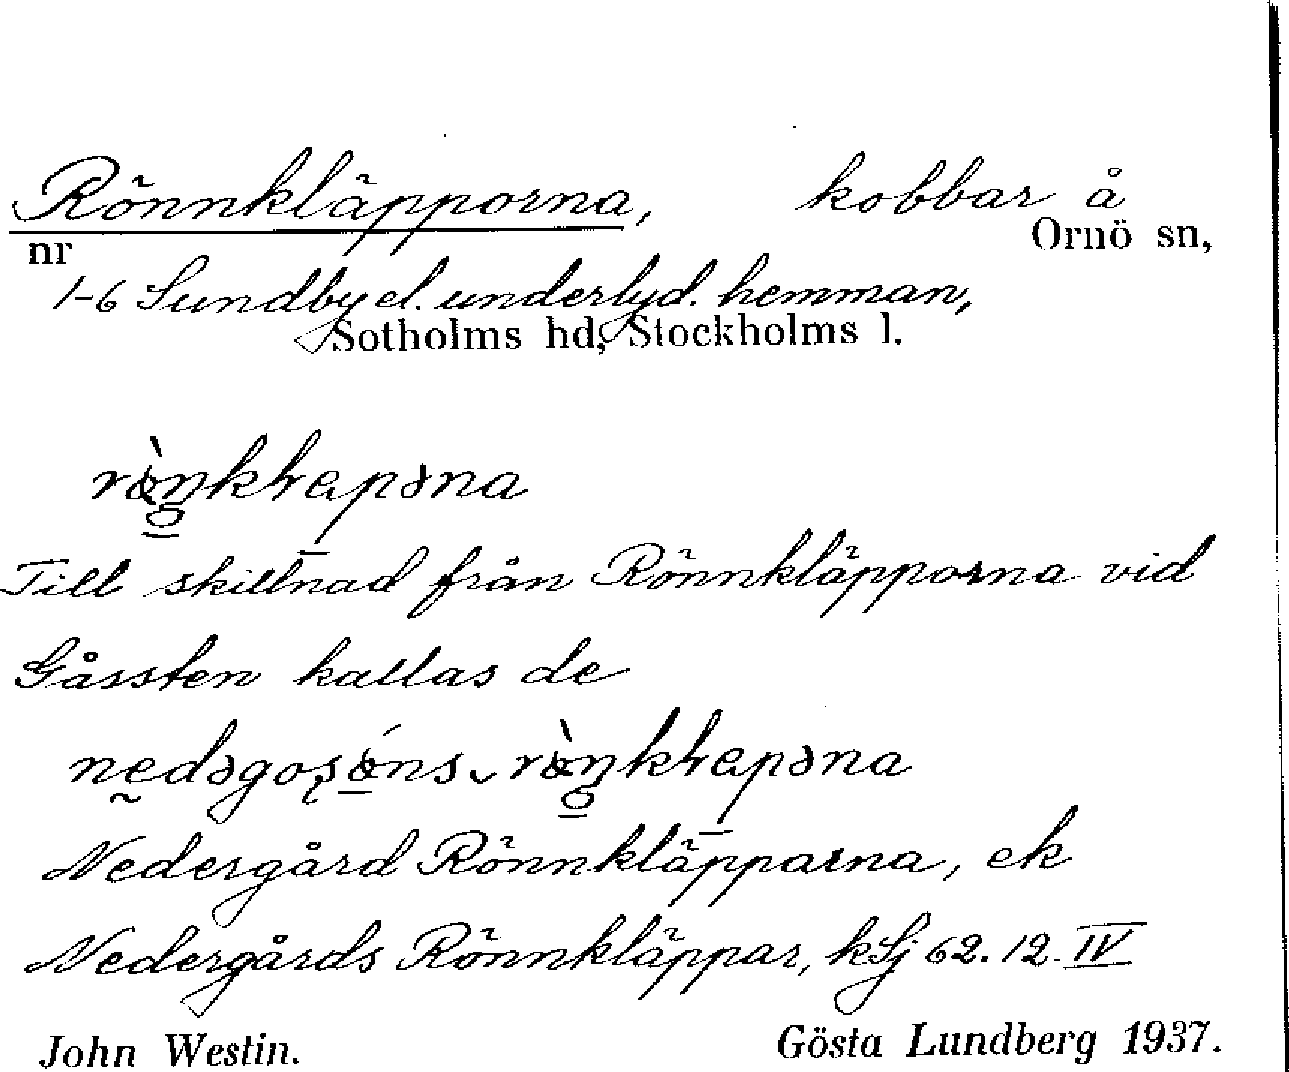 Rönnkläpporna, kobbar å
nr Ornö sn,
1-6 Sundby el. underlyd. hemman,
Sotholms hd, Stockholms l.
Till skillnad från Rönnkläpporna vid
Gåssten kallas de
Nedergård Rönnkläpparna, ek
Nedergårds Rönnkläppar, kSj 62.12.IV
John Westin. Gösta Lundberg 1937.